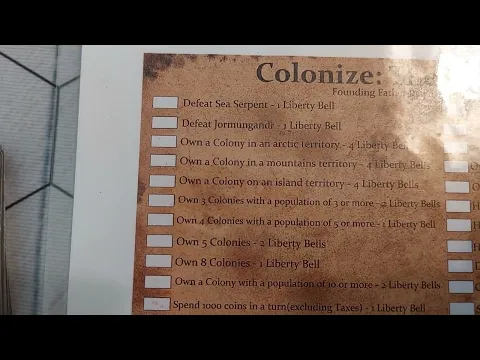 Colonize:
Founding
Defeat Sea Serpent - 1 Liberty Bell
Defeat Jormungandr - 1 Liberty Bell
Own a Colony in an arctic territory - 4 Liberty Bells
Own a Colony in a mountains territory - 4 Liberty Bells
Own a Colony on an island territory - 4 Liberty Bells
Own 3 Colonies with a population of 3 or more - 2 Liberty Bells
Own 4 Colonies with a population of 5 or more - 1 Liberty Bell
Own 5 Colonies - 2 Liberty Bells
Own 8 Colonies - 1 Liberty Bell
Own a Colony with a population of 10 or more - 2 Liberty Bells
Spend 1000 coins in a turn(excluding Taxes) - 1 Liberty Bell